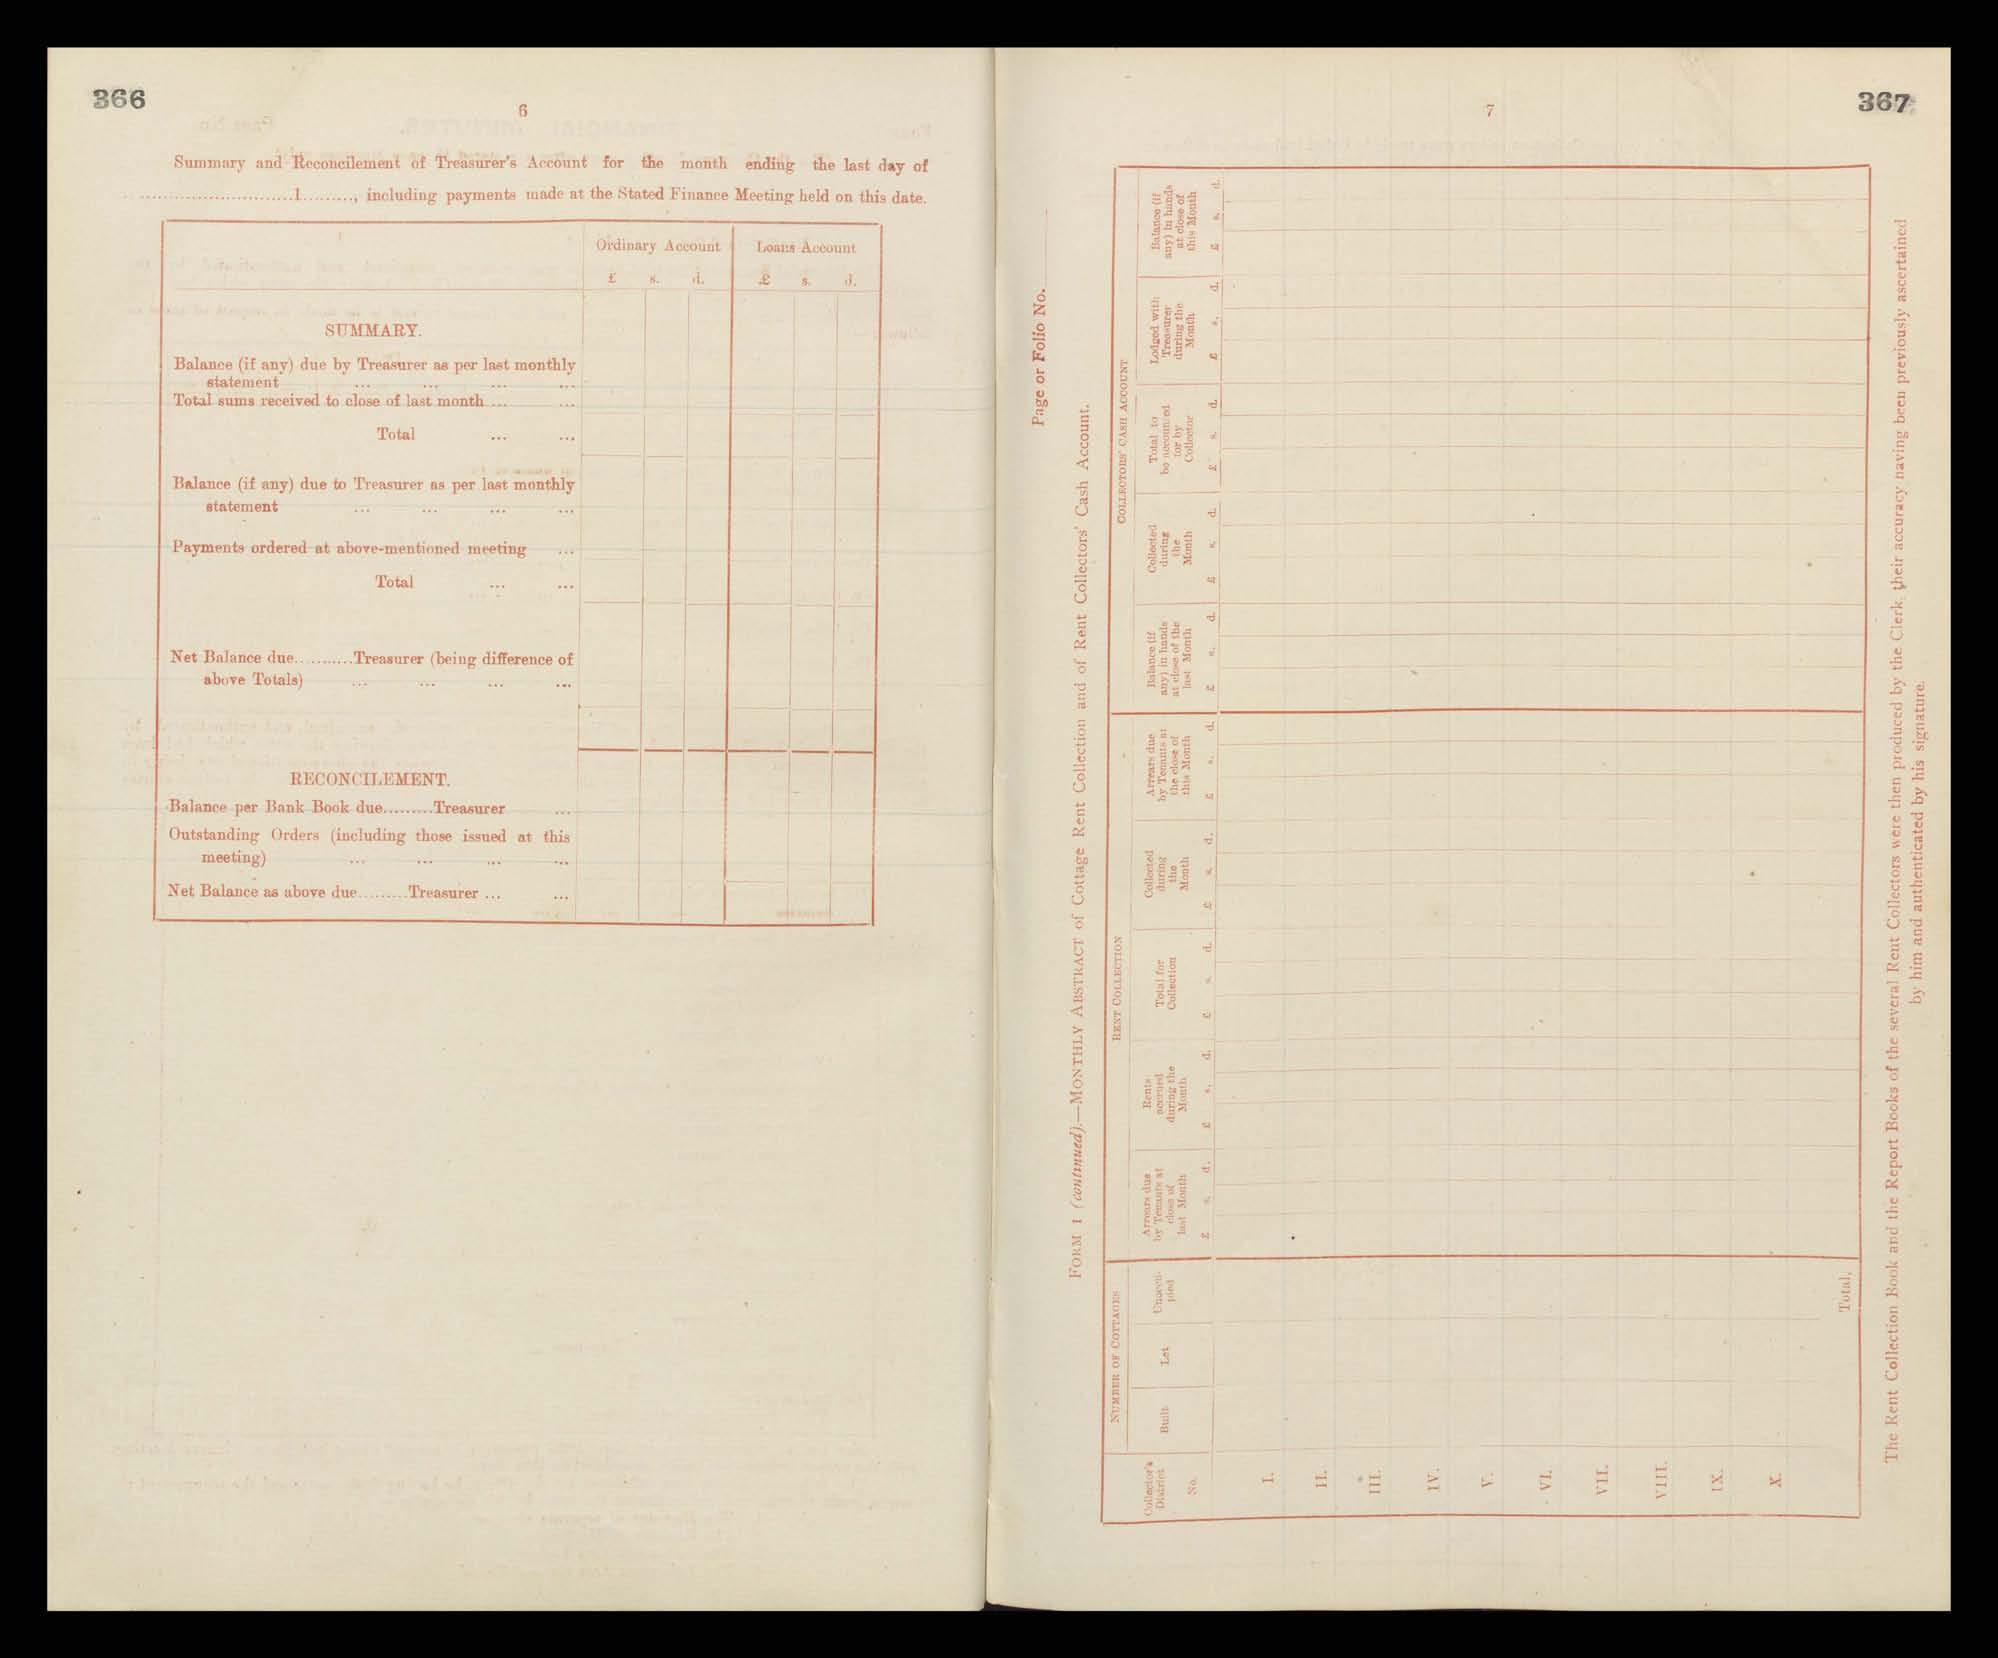 366
6
Summary and Reconcilement of Treasurer's Account for the month ending the last day of
..............................1.........., including payments made at the Stated Finance Meeting held on this date.
Ordinary Account Loans Account
£ s. d. £ s. d.
SUMMARY.
Balance (if any) due by Treasurer as per last monthly
statement ... ... ... ...
Total sums received to close of last month ... ...
Total ... ...
Balance (if any) due to Treasurer as per last monthly
statement ... ... ... ...
Payments ordered at above-mentioned meeting ...
Total ... ...
Net Balance due...........Treasurer (being difference of
above Totals) ... ... ... ...
RECONCILEMENT.
Balance per Bank Book due.........Treasurer ...
Outstanding Orders (including those issued at this
meeting) ... ... ... ...
Net Balance as above due.........Treasurer ... ...
367
7
Page or Folio No.
FORM 1 (continued).—MONTHLY ABSTRACT of Cottage Rent Collection and of Rent Collectors' Cash Account.
NUMBER OF COTTAGES RENT COLLECTION COLLECTORS' CASH ACCOUNT
Collector's
District
No.
Built
Let
Unoccu-
pied
Arrears due
by Tenants at
close of
last Month
£ s. d.
Rents
accrued
during the
Month
£ s. d.
Total for
Collection
£ s. d.
Collected
during
the
Month
£ s. d.
Arrears due
by Tenants at
the close of
this Month
£ s. d.
Balance (if
any) in hands
at close of the
last Month
£ s. d.
Collected
during
the
Month
£ s. d.
Total to
be accounted
for by
Collector
£ s. d.
Lodged with
Treasurer
during the
Month
£ s. d.
Balance (if
any) in hands
at close of
this Month
£ s. d.
I.
II.
III.
IV.
V.
VI.
VII.
VIII.
IX.
X.
Total,
The Rent Collection Book and the Report Books of the several Rent Collectors were then produced by the Clerk, their accuracy having been previously ascertained
by him and authenticated by his signature.